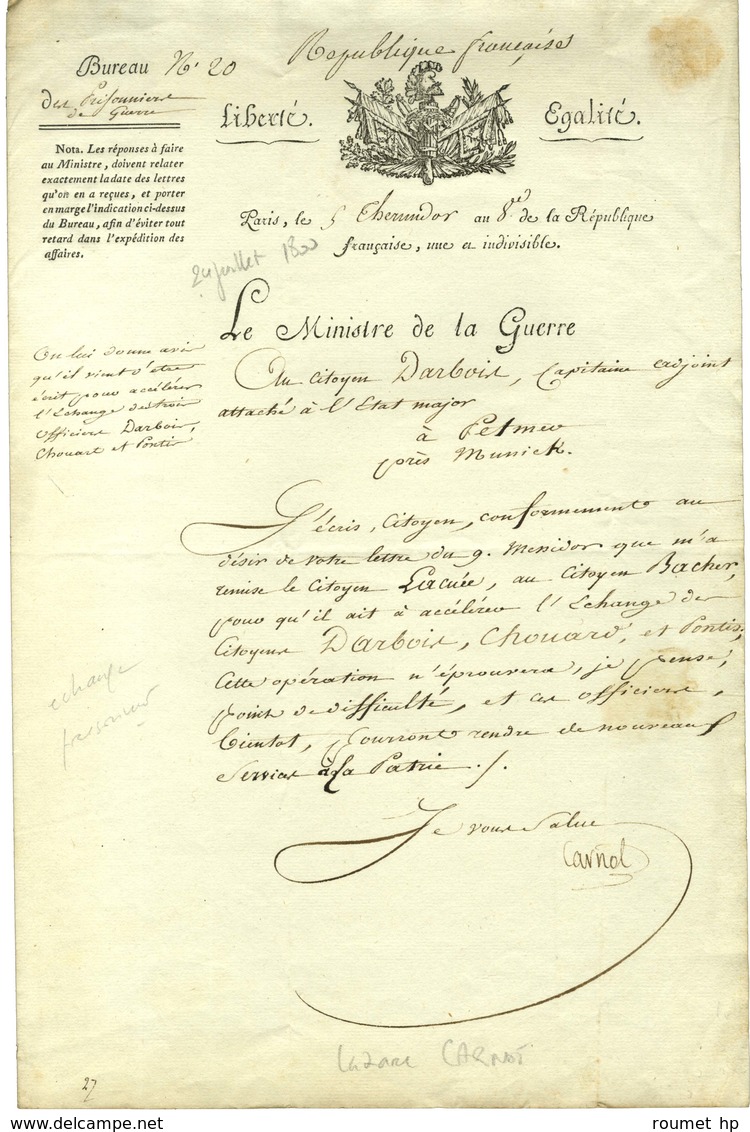 Bureau N.° 20
des Prisonniers
de Guerre
Republique françaises
Liberté.
Egalité.
Nota. Les réponses à faire
au Ministre, doivent relater
exactement la date des lettres
qu'on en a reçues, et porter
en marge l'indication ci-dessus
du Bureau, afin d'éviter tout
retard dans l'expédition des
affaires.
Paris, le 5 Thermidor au 8.e de la République
française, une et indivisible.
24 juillet 1800
Le Ministre de la Guerre
On lui donne avis
qu'il vient d'être
écrit pour accélérer
l'Echange des trois
officiers Darbois,
Chouart et Pontis
Au Citoyen Darbois, Capitaine adjoint
attaché à l'Etat major
à Petmew
près Munick.
J'écris, Citoyen, conformement au
désir de votre lettre du 9. Messidor que m'a
remise le Citoyen Lacuée, au Citoyen Bacher,
pour qu'il ait à accélérer l'Echange des
Citoyens Darbois, Chouard, et Pontis;
Cette opération n'éprouvera, je pense,
point de difficulté, et ces officiers,
bientot, pourront rendre de nouveaux
Services à la Patrie ./.
echange
prisonnier
Je vous Salue
Carnot
Lazare CARNOT
27
roumet hp